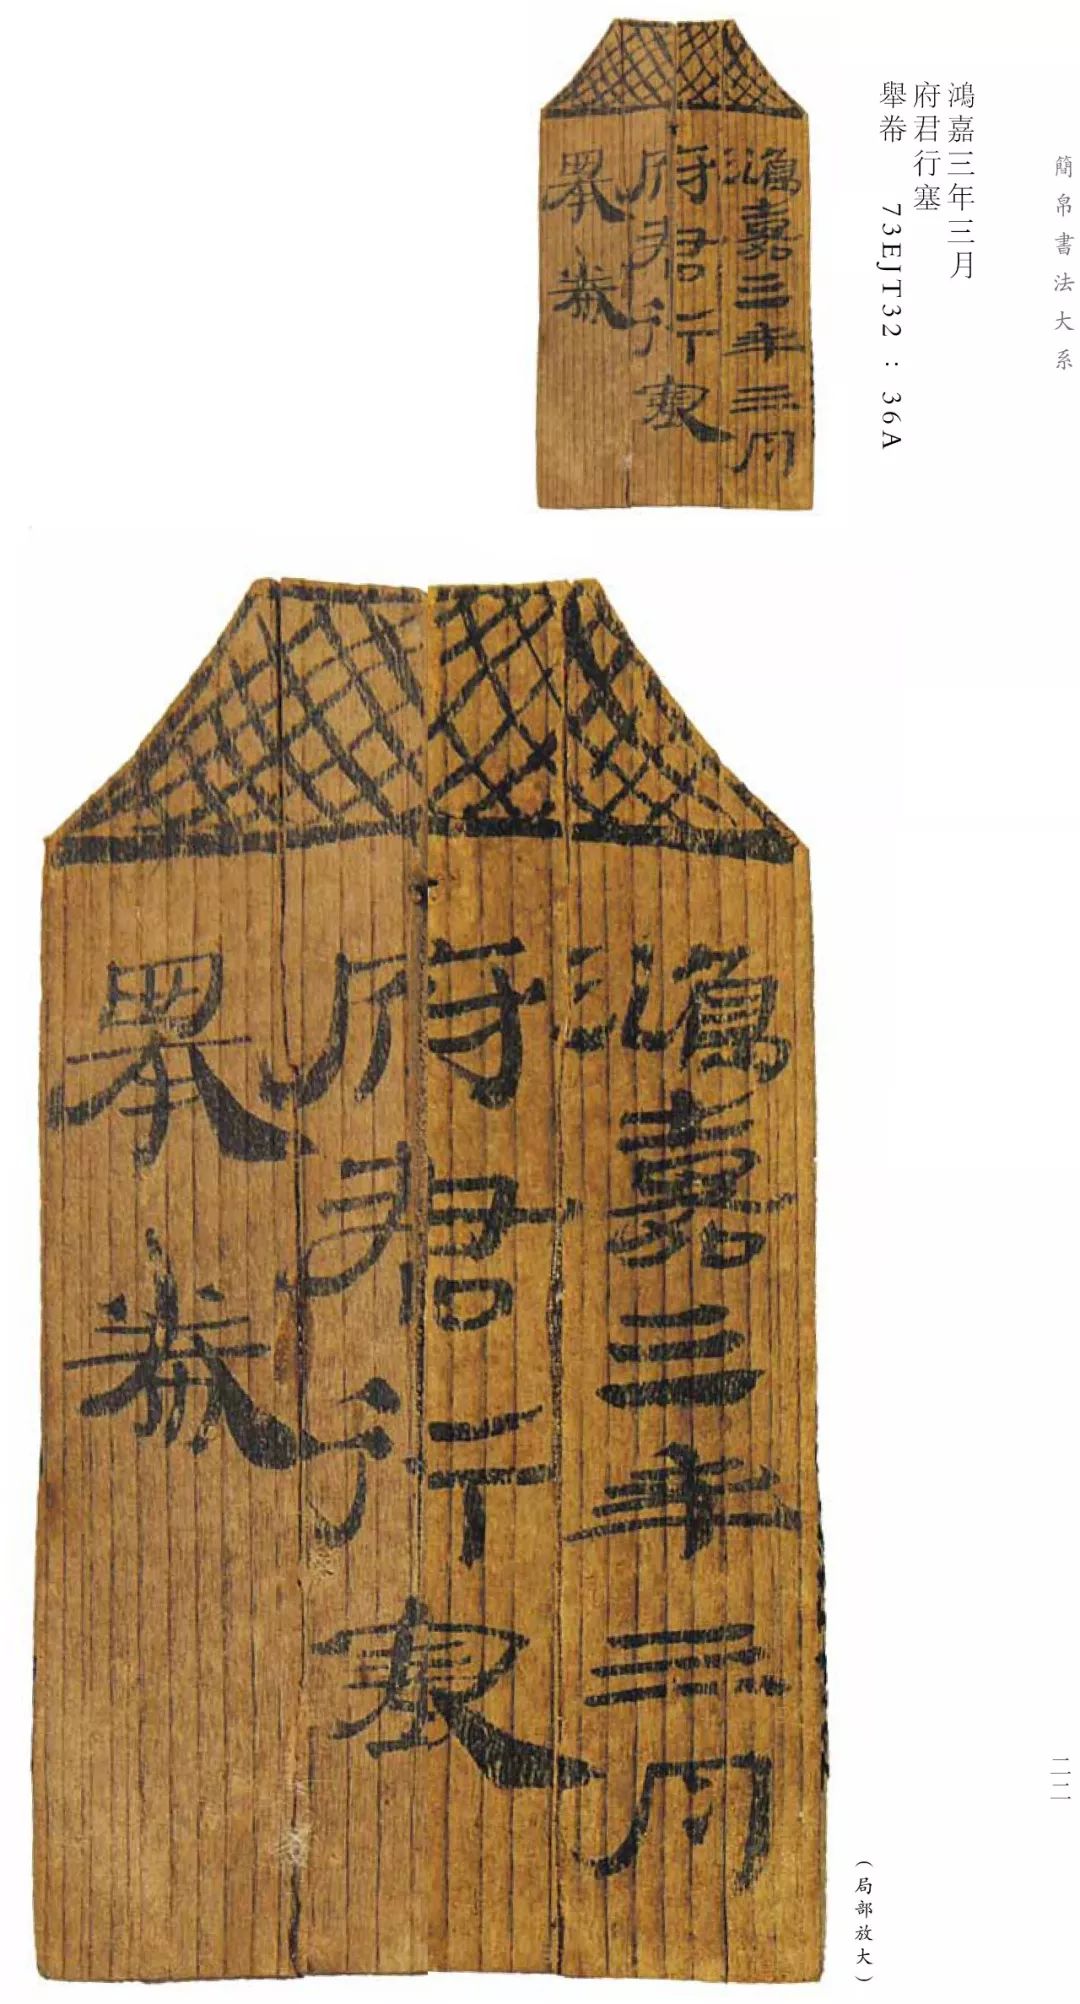 簡帛書法大系
鴻嘉三年三月
府君行塞
舉帣 73EJT32:36A
鴻嘉三年三月
府君行塞
舉帣
鴻嘉三年三月
府君行塞
舉帣
(局部放大)
二二